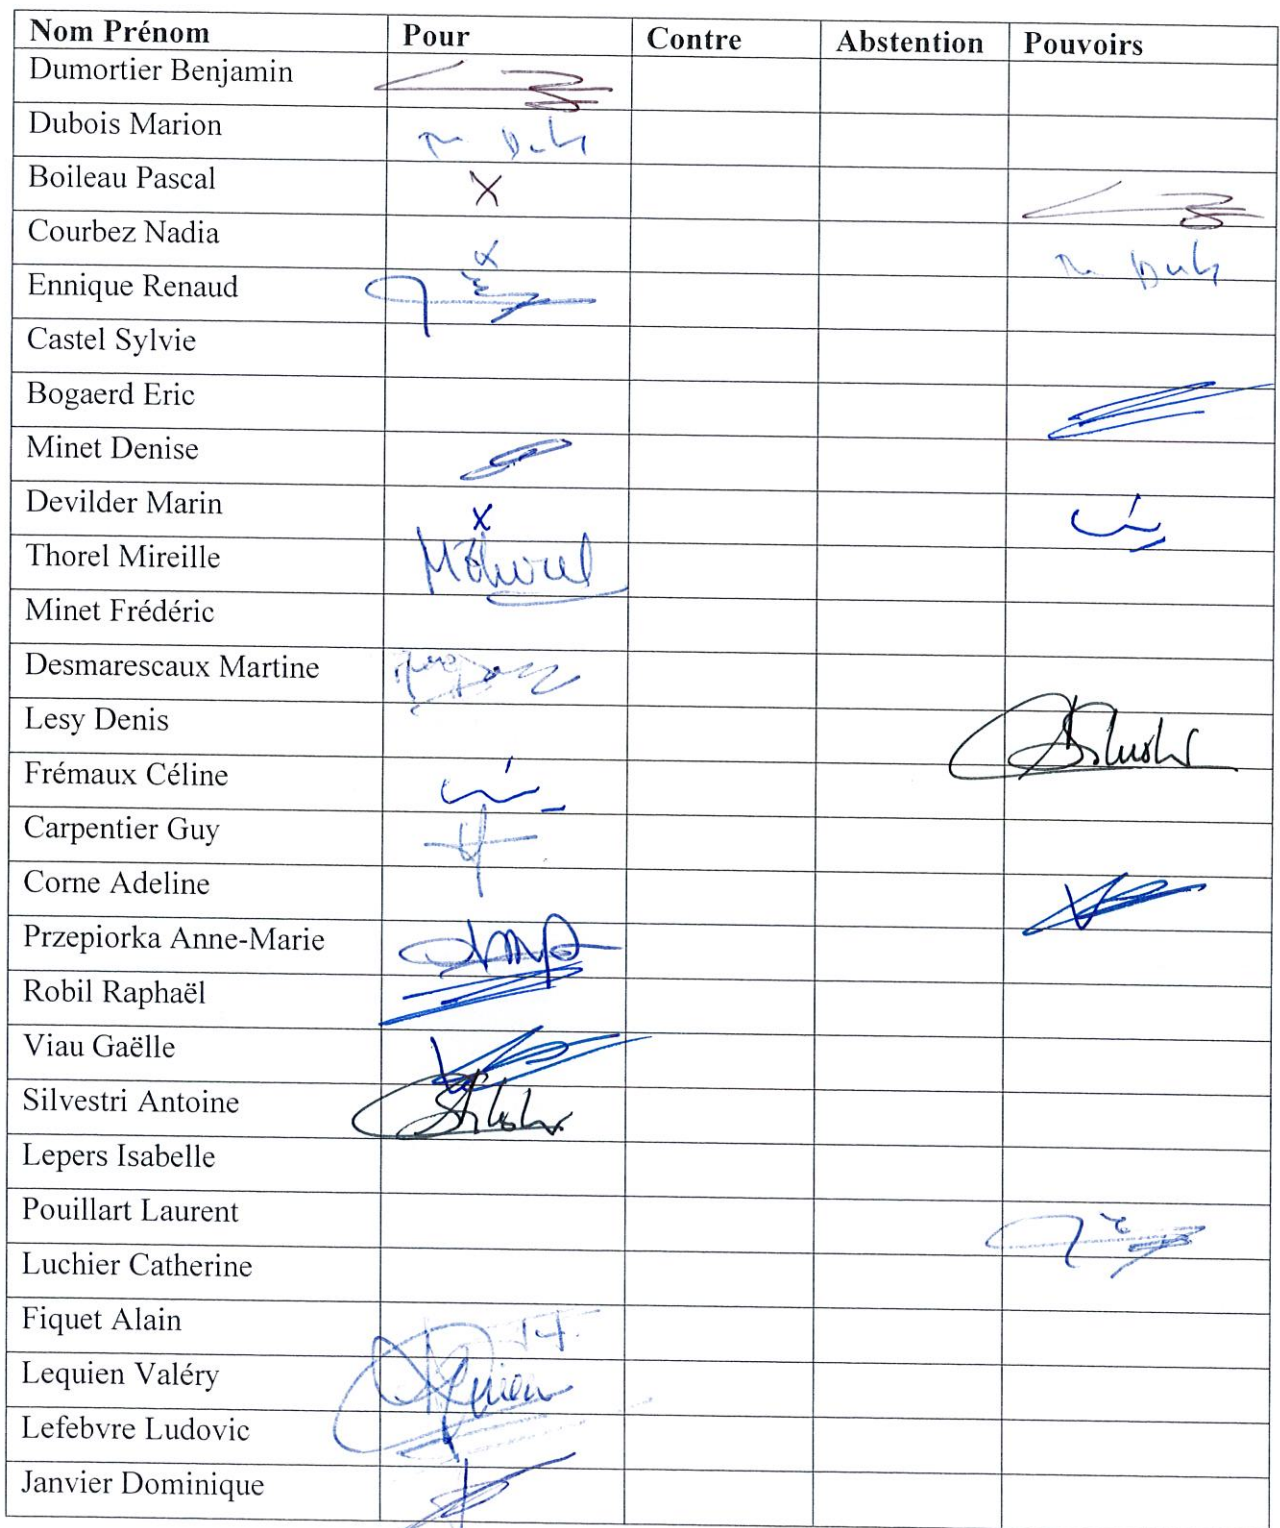 Nom Prénom Pour Contre Abstention Pouvoirs
Dumortier Benjamin
Dubois Marion
Boileau Pascal X
Courbez Nadia x
Ennique Renaud
Castel Sylvie
Bogaerd Eric
Minet Denise
Devilder Marin x
Thorel Mireille
Minet Frédéric
Desmarescaux Martine
Lesy Denis
Frémaux Céline
Carpentier Guy
Corne Adeline
Przepiorka Anne-Marie
Robil Raphaël
Viau Gaëlle
Silvestri Antoine
Lepers Isabelle
Pouillart Laurent
Luchier Catherine
Fiquet Alain
Lequien Valéry
Lefebvre Ludovic
Janvier Dominique